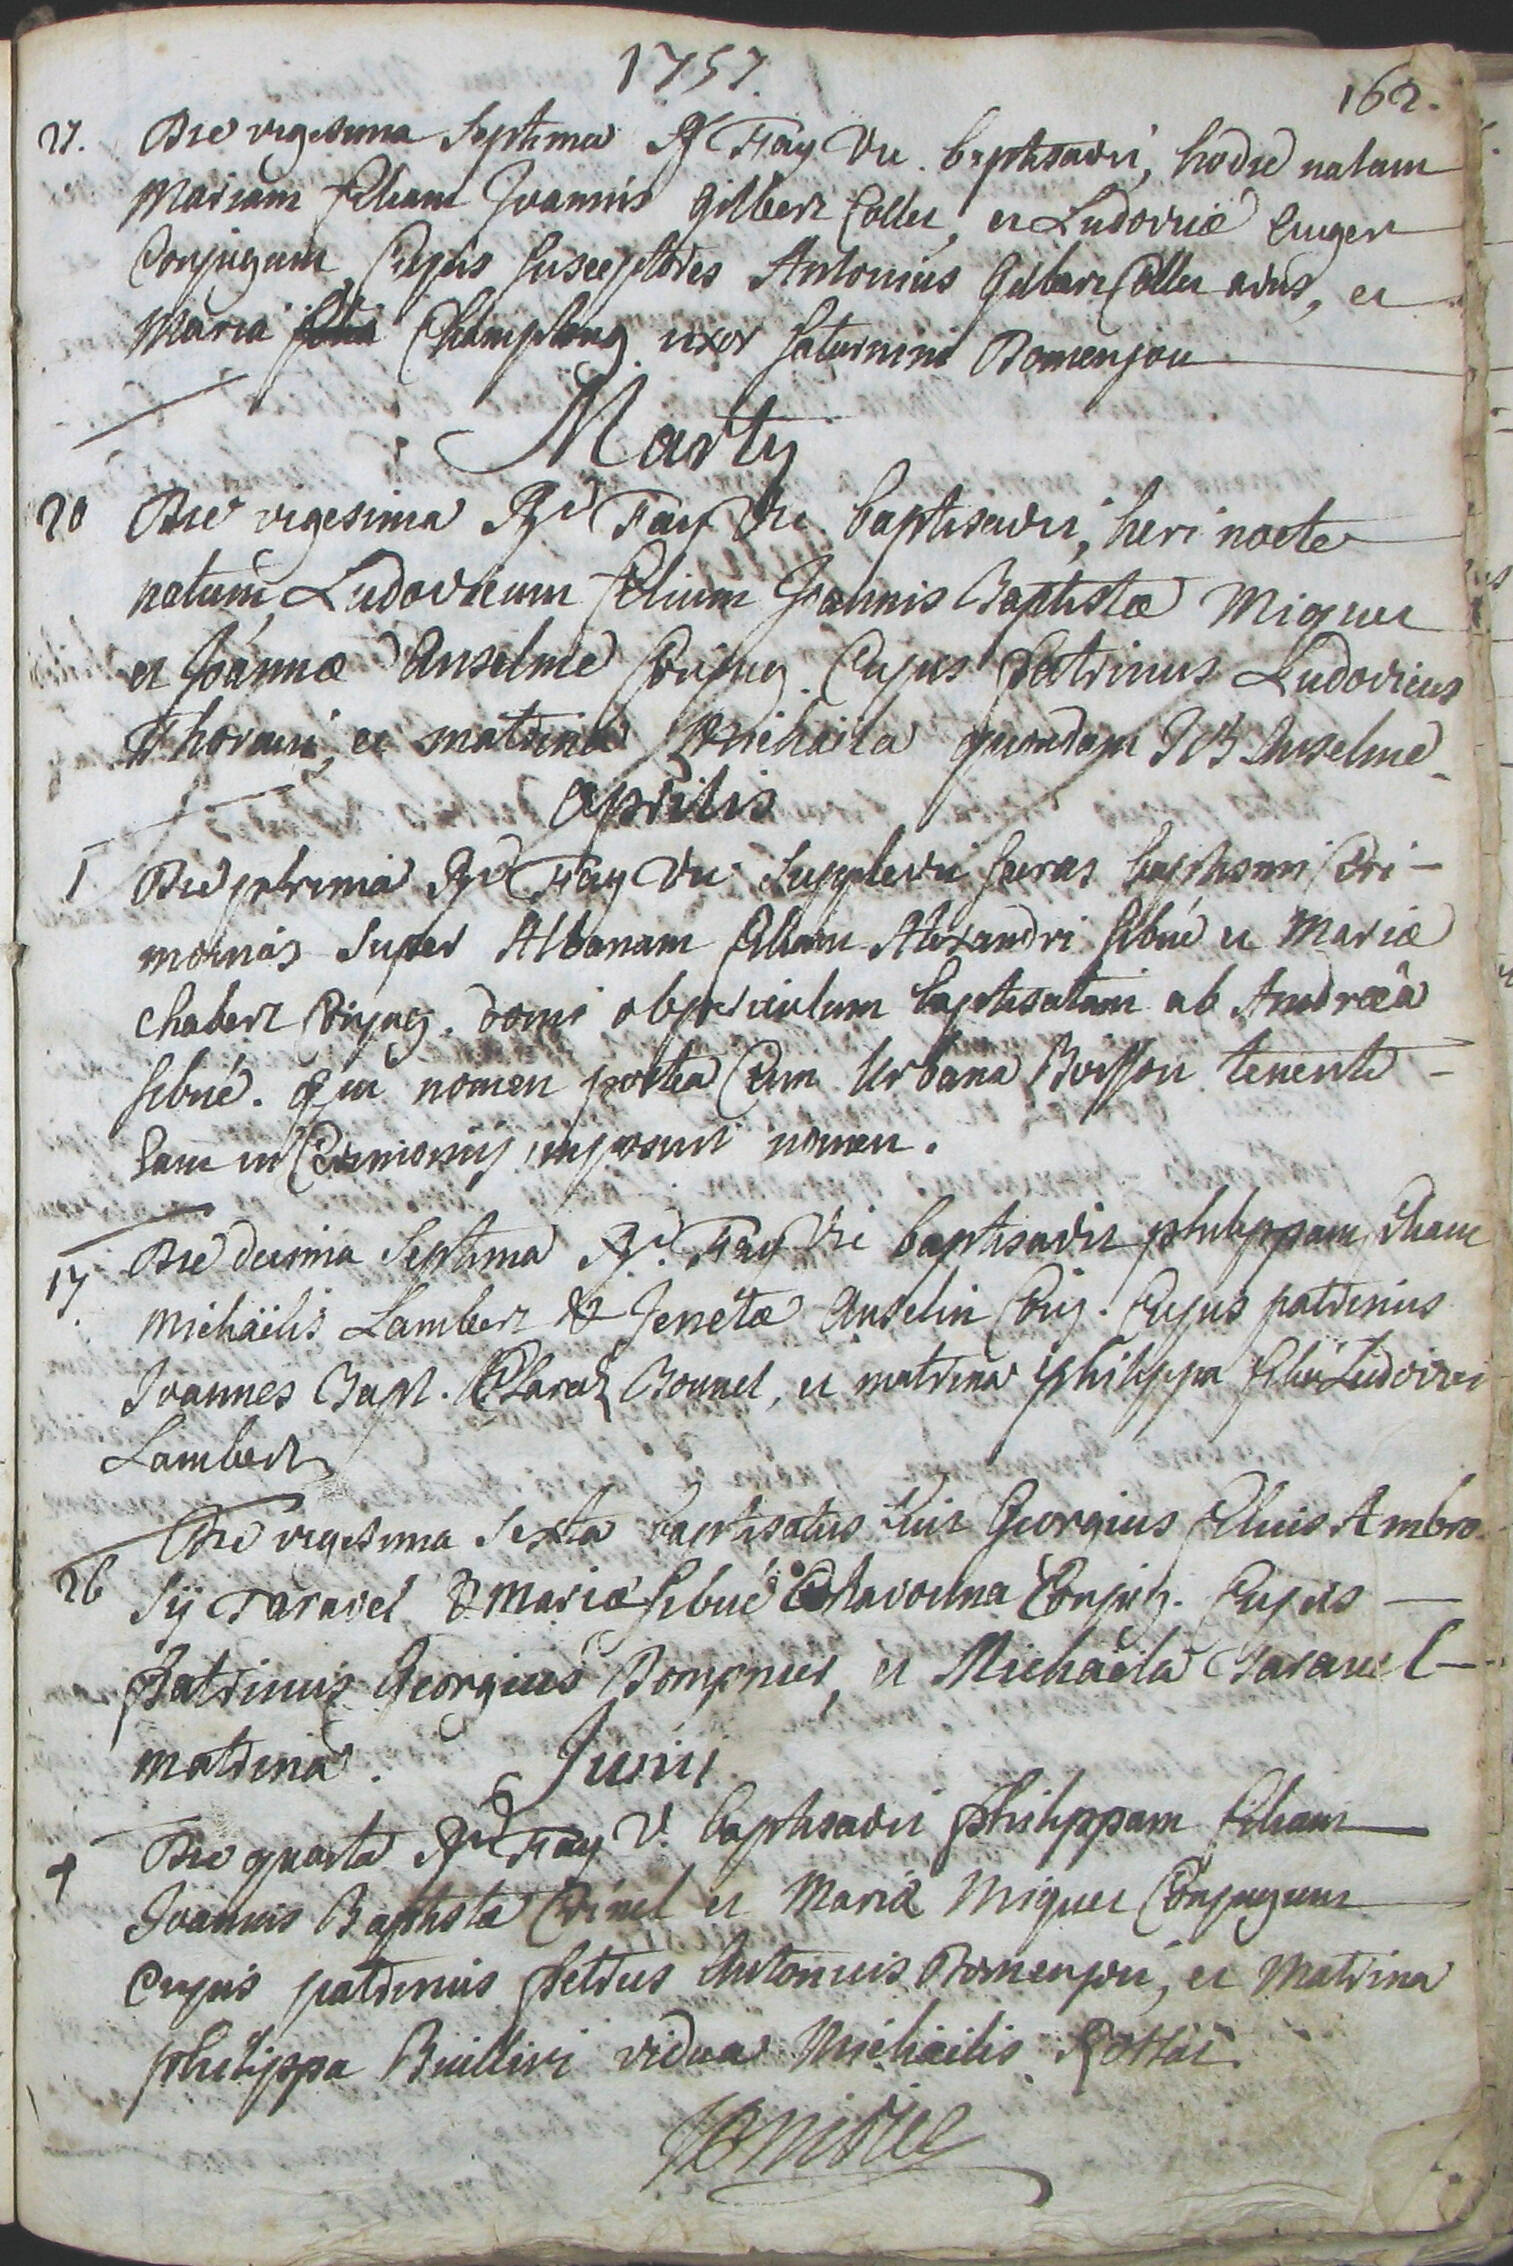 1757.
162.
27. Die vigesima Septima Rd Fay Vic. baptisavit, hodie natam
Mariam filiam Joannis Gilbert Collet, et Ludovicæ
Conjugum Cujus Susceptores Antonius Gilbert Collet avus, et
Maria uxor Saturnini Bomenjou
Martij
20 Die vigesima Rd Fay Vic. baptisavit, heri nocte
natum Ludovicum filium Joannis Baptistæ Miquet
et Joannæ Anselme Conjug. Cujus Patrinus Ludovicus
et matrina Michaëla quondam JB Anselme
Aprilis
1 Die prima Rd Fay Vic. Supplevit baptismi Cæri-
monias Super Albanam filiam Alexandri Sibué et Mariæ
Chabert Conjug. domi ob periculum baptisatam ab Andrææ
Sibué. qui nomen postea Cum Urbana Buisson tenente
eam in Cærimoniis imposuit nomen.
17. Die decima Septima Rd. Fay Vic baptisavit philippam filiam
Michaëlis Lambert & Jenetæ Anselin Conj. Cujus patrinus
Joannes Bapt. Claraz Bonnel, et matrina philippa filia Ludovici
Lambert
26 Die vigesima Sexta baptisatus fuit Georgius filius Ambro
sij Taravel & Mariæ Sibué Chavonna Conjug. Cujus
Patrinus Georgius et Michaëla Taravel
matrina.
Junii
4 Die quarta Rd Fay V. baptisavit Philippam filiam
Joannis Baptistæ et Mariæ Miquet Conjugum
Cujus patrinus Petrus Antonius Bomenjou, et Matrina
philippa vidua Michaëlis